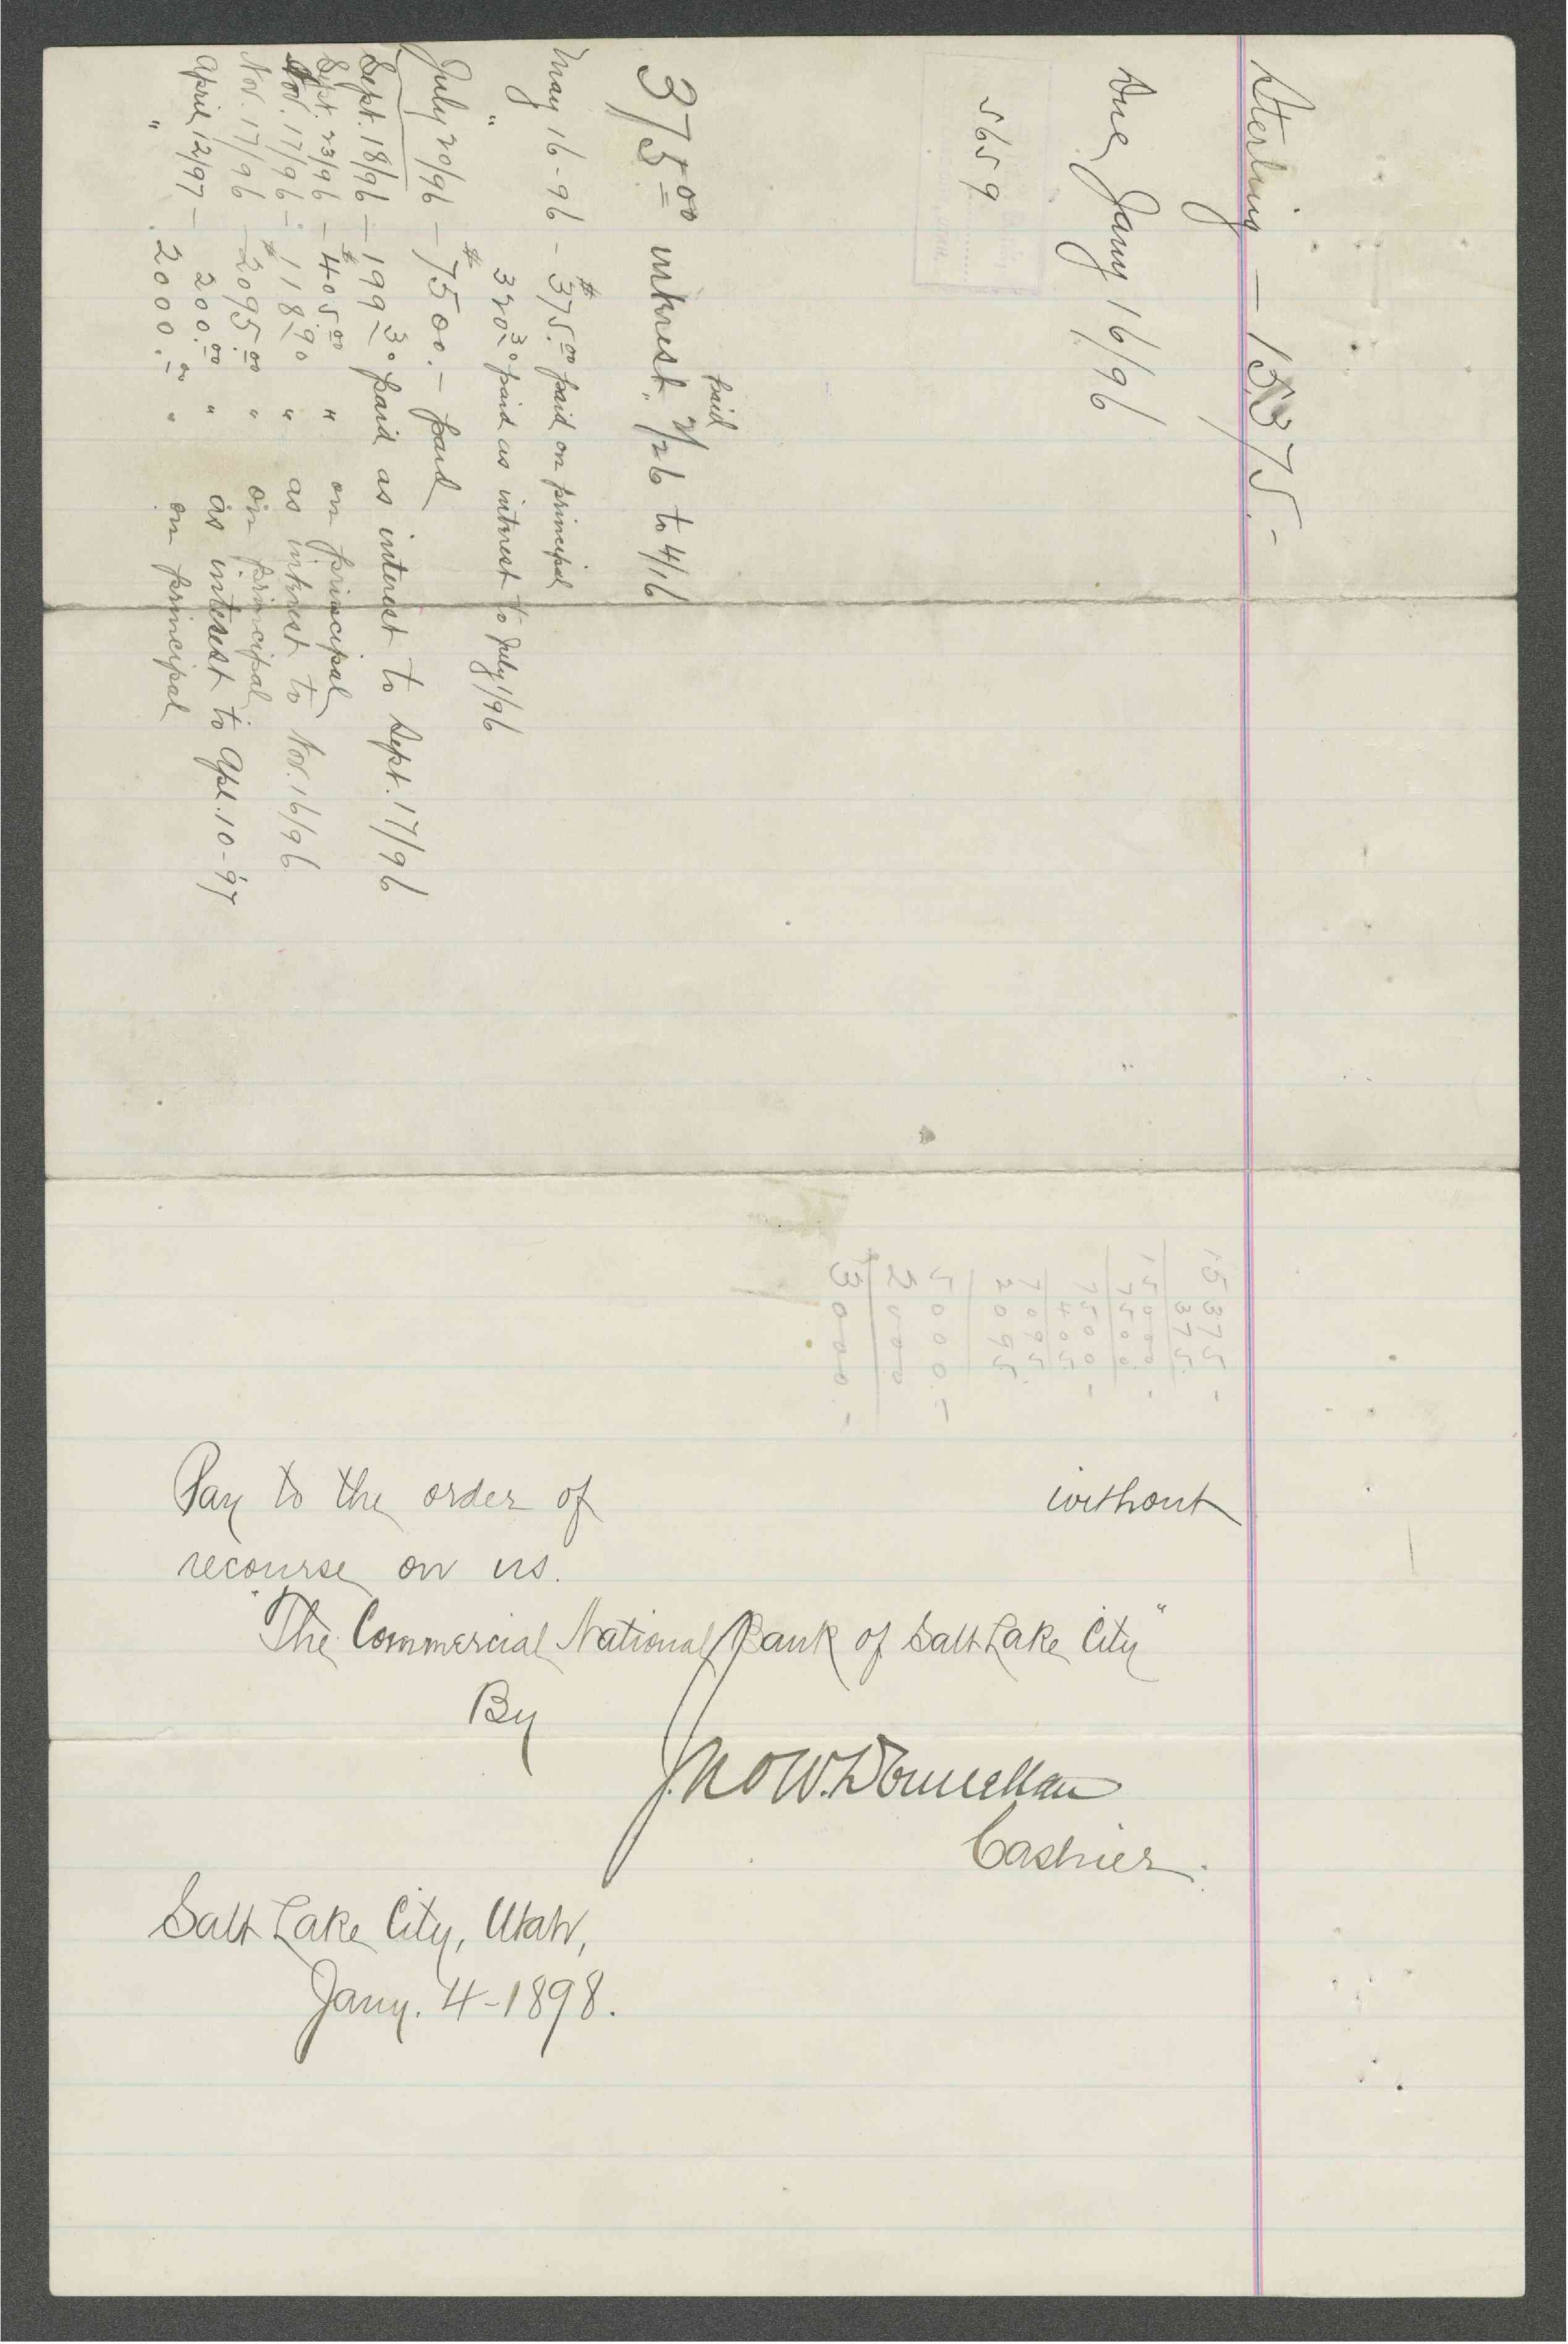 Sterling — 15,375.-
Due Jany 16/96
5659
paid
375.00 interest, 2/26 to 4/16
May 16-96 - $375.00 paid on principal
" 320.30 paid as interest to July 1/96
July 20/96 — $7500.- paid
Sept. 18/96 — 199.30 paid as interest to Sept. 17/96
Sept. 23/96 - $405.00 " on principal
Nov. 17/96 - 118.90 " as interest to Nov. 16/96
Nov. 17/96 - $2095.00 " on principal
April 12/97 - 200.00 " as interest to Apl. 10-97
" 2000.00 " on principal
15375-
375.
15000-
7500.
7500-
405.
7095.
2095.
5000.-
2000
3000.-
Pay to the order of without
recourse on us.
"The Commercial National Bank of Salt Lake City"
By
Jno W. Donnellan
Cashier.
Salt Lake City, Utah,
Jany. 4-1898.